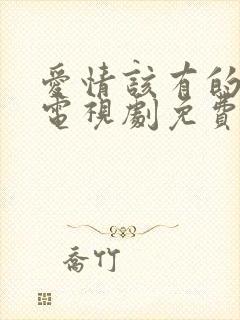 愛情該有的
電視劇免費
喬竹